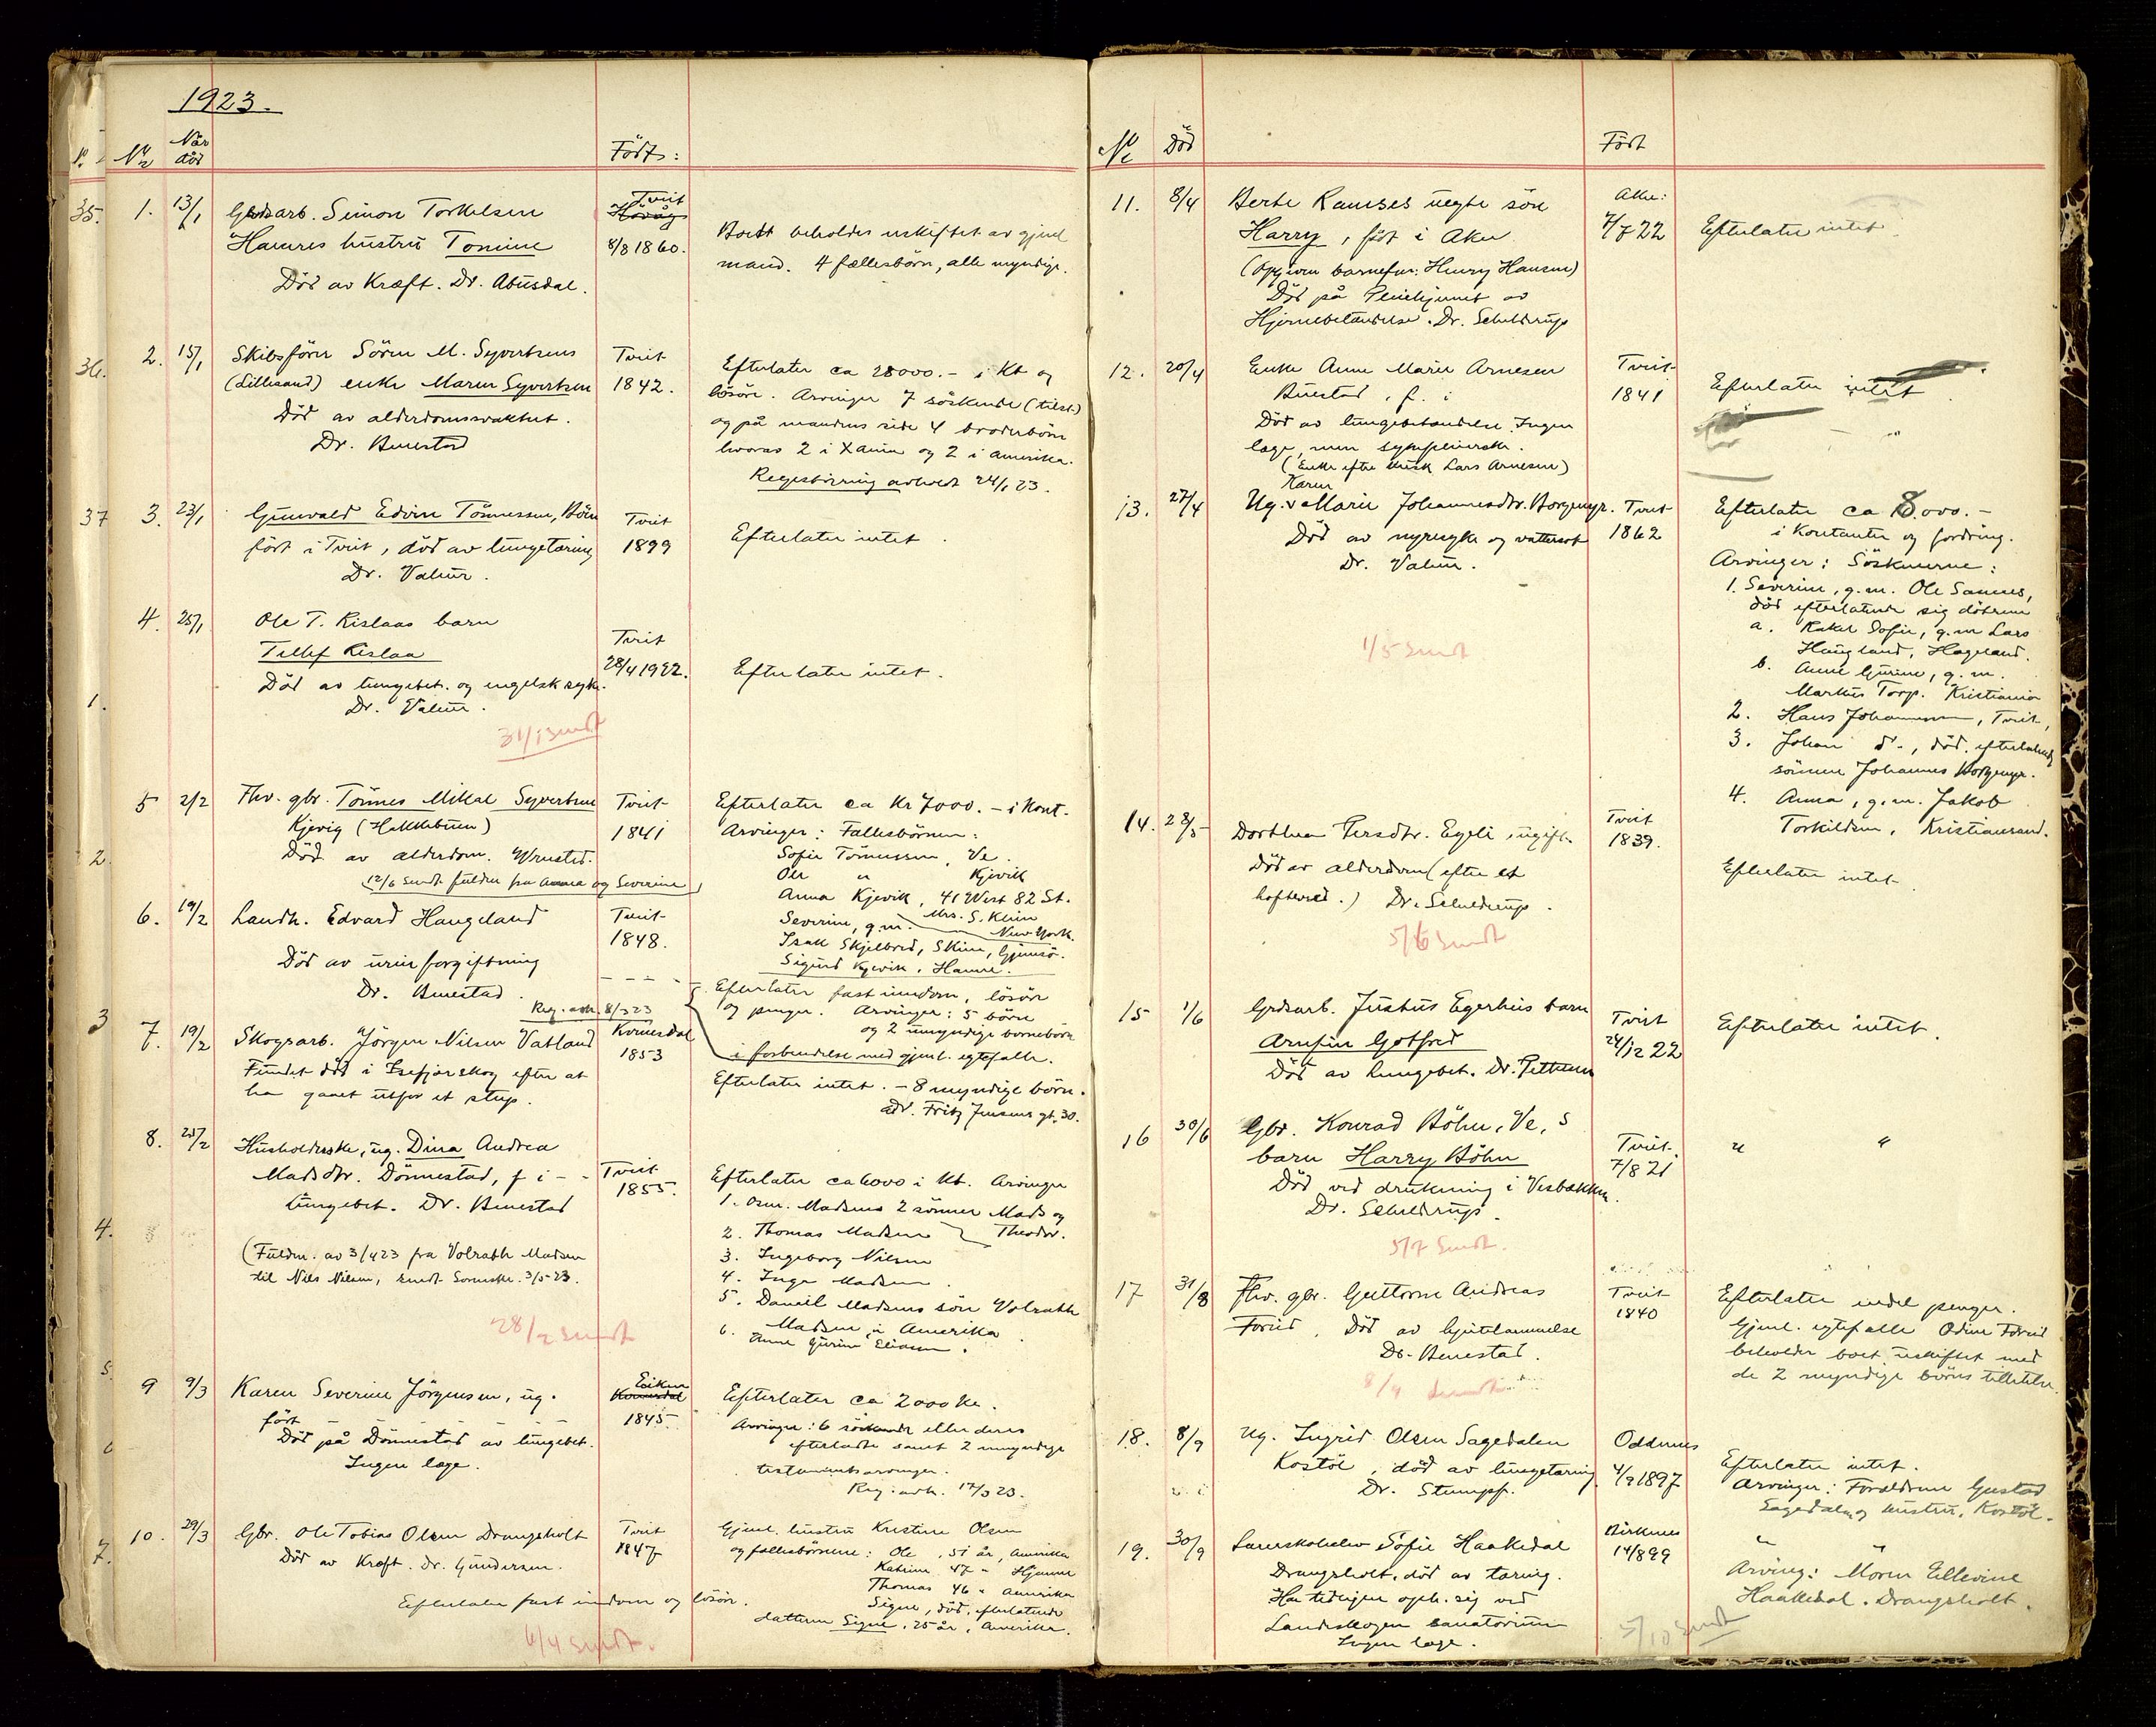 1923.
No Når død Født:
1. 13/1 Grdsarb. Simon Torkelsen
Hamres hustru Tomine
Död av Kræft. Dr. Abusdal.
Tveit
Hövåg
8/8 1860.
Boet beholdes uskiftet av gjenl
mand. 4 fællesbörn, alle myndige.
2. 15/1 Skibsförer Sören M. Syvertsens
(Lillesand) enke Maren Syvertsen
Död av alderdomssvakhet.
Dr. Benestad
Tveit
1842.
Efterlater ca 28000.- i Kt og
lösöre. Arvinger 7 söskende (tilst.)
og på mandens side 4 broderbörn
hvorav 2 i Xania og 2 i Amerika.
Registrering avholdt 24/1 23.
3. 23/1 Gunvald Edvin Tönnessen, Böen
födt i Tveit, död av lungetæring
Dr. Valeur.
Tveit
1899
Efterlater intet.
4. 25/1 Ole T. Rislaas barn
Tellef Rislaa
Död av lungebet. og engelsk syke.
Dr. Valeur.
Tveit
28/4 1922.
Efterlater intet.
31/1 sendt
5 2/2 Fhv. gbr. Tönnes Mikal Syvertsen
Kjevig (Hekkebuen)
Död av alderdom.
12/6 sendt fuldm fra Anna og Severine
Tveit
1841
Efterlater ca Kr 7000.- i Kont.
Arvinger: Fællesbörnene:
Sofie Tönnessen, Ve.
Ole " Kjevik
Anna Kjevik, 41 West 82 St.
Mrs. S. Klein New York.
Severine, g.m.
Isak Skjelbred, Skien, Gjemsö.
Sigurd Kjevik, Hamre.
6. 19/2 Landh. Edvard Haugeland
Död av urinforgiftning
Dr. Benestad.
Reg. avh. 8/3 23
Tveit
1848.
Efterlater fast eiendom, lösöre
og penger. Arvinger: 5 börn
og 2 umyndige barnebörn
i forbindelse med gjenl. egtefælle.
7. 19/2 Skogsarb. Jörgen Nilsen Vatland
Fundet död i skog efter at
ha gaaet utfor et stup.
Kvinesdal
1853
Efterlater intet. - 8 myndige börn.
adr. Fritz Jensens gt. 30.
8. 25/2 Husholderske, ug. Dina Andrea
Madsdtr. Dönnestad, f i - -
Lungebet. Dr. Benestad
(Fuldm. av 3/4 23 fra Volrath Madsen
til Nils Nilsen, sendt Sorenskr. 3/5-23.
Tveit
1855.
Efterlater ca 6000 i Kt. Arvinger
1. Osm. Madsens 2 sönner Mads og
Theodor.
2. Thomas Madsen
3. Ingeborg Nilsen
4. Inga Madsen.
5. Daniel Madsens sön Volrath
Madsen i Amerika.
6. Anne Gurine Eliassen.
28/2 sendt
9 9/3 Karen Severine Jörgensen, ug.
födt
Död på Dönnestad av lungebet.
Ingen læge.
Eiken
Kvinesdal
1845.
Efterlater ca 2000 kr.
Arvinger: 6 söskende eller deres
efterladte samt 2 umyndige
testamentsarvinger.
Reg. avh. 17/3 23.
10. 29/3 Gbr. Ole Tobias Olsen Drangsholt
Död av Kræft. Dr. Gundersen.
Efterlater fast eiendom og lösöre.
Tveit
1847
Gjenl. hustru Kristine Olsen
og fællesbörnene: Ole, 51 år, Amerika
Katrine 47 " Hjemme
Thomas 46 " Amerika
Signe, död, efterlatende
datteren Signe, 25 år, Amerika.
4/4 sendt.
No Död Födt
11. 8/4 Berte Ramses uegte sön
Harry, födt i Aker
(Opgiven barnefar: Henry Hansen)
Död på Pleiehjemmet av
Hjernebetændelse. Dr. Schelderup
Aker:
4/7 22
Efterlater intet.
12. 20/4 Enke Anne Marie Arnesen
Buestad, f. i
Död av lungebetændelse. Ingen
læge, men sykepleierske.
(Enke efter Lars Arnesen)
Tveit
1841
Efterlater intet.
13. 27/4 Ug. Karen Marie Johannesdtr. Borgemyr.
Död av nyresyke og vattersot
Dr. Valeur.
Tveit
1862
1/5 sendt
Efterlater ca 8.000.-
i Kontanter og fordring.
Arvinger: Söskenerne:
1. Severine, g.m. Ole Sannes,
död efterlatende sig döttrene
a. Rakel Sofie, g.m Lars
Haugland, Hægeland.
b. Anne Gurine, g.m.
Markus Torp. Kristiania
2. Hans Johannessen, Tveit,
3. Johan do., död, efterlatende
sönnen Johannes Borgemyr.
4. Anna, g.m. Jakob
Torkildsen, Kristiansand.
14. 28/5 Dorthea Persdtr. Egeli, ugift.
Död av alderdom (efter et
hoftebrud.) Dr. Schelderup.
Tveit
1839.
Efterlater intet.
5/6 sendt
15 1/6 Grdsarb. Justus Egerhus barn
Arnfin Gotfred
Död av lungebet. Dr. Pettersen
Tveit
24/12 22
Efterlater intet.
16 30/6 Gbr. Konrad Böhn, Ve, s
barn Harry Böhn
Död ved drukning i Vesbækken.
Dr. Schelderup.
Tveit.
7/8 21
" "
5/7 sendt.
17 31/8 Fhv. gbr. Guttorm Andreas
Foreid, Död av hjertelammelse
Dr. Benestad.
Tveit
1840
Efterlater endel penger.
Gjenl. egtefælle Odine Foreid
beholder boet uskiftet med
de 2 myndige börns tilladelse.
8/9 sendt
18. 8/9 Ug. Ingrid Olsen Sagedalen
Kostöl, död av lungetæring.
Dr. Stumpf.
Oddernes
4/9 1897
Efterlater intet.
Arvinger: Forældrene Gustav
Sagedalen og hustru, Kostöl.
19. 30/9 Lærerskoleelev Sofie Haakedal
Drangsholt, död av tæring.
Har tidligere oph. sig ved
Landeskogen sanatorium
Ingen læge.
Birkenes
14/8 99
" "
Arving: Moren Ellevine
Haakedal. Drangsholt.
5/10 sendt